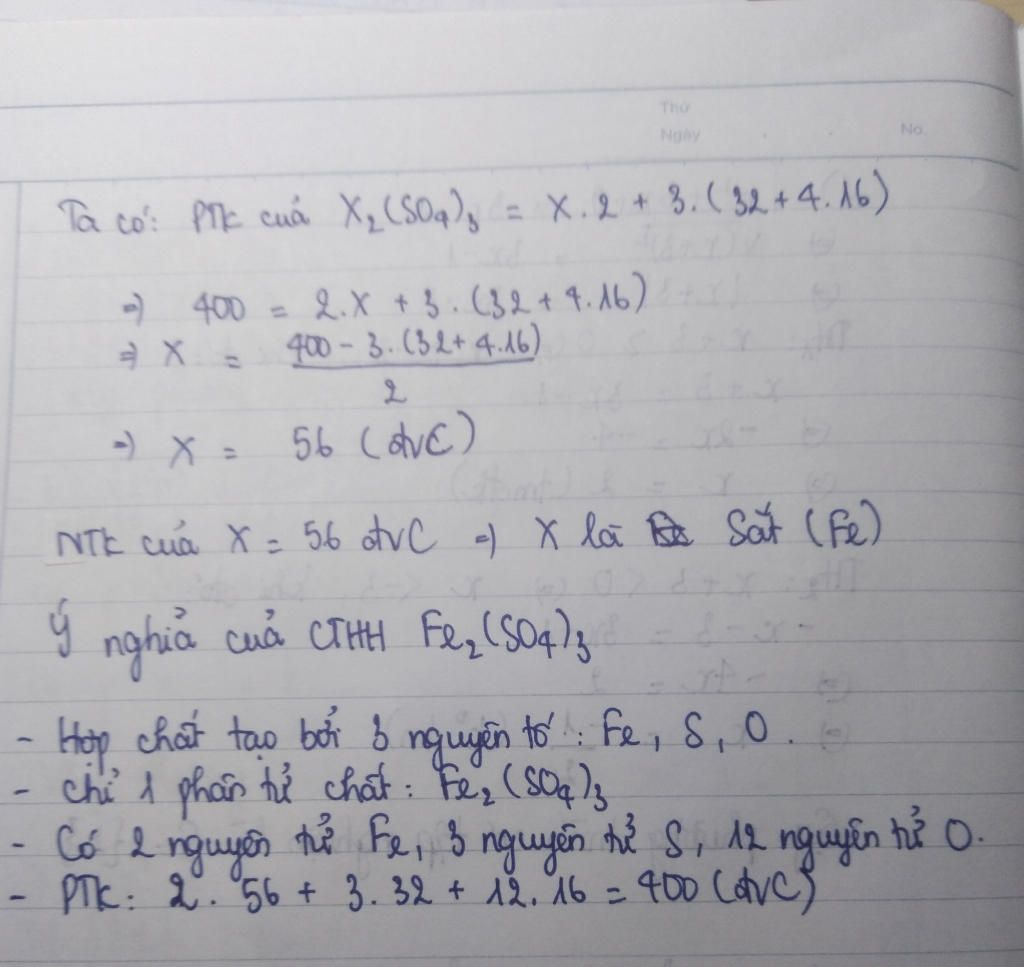 Thứ
Ngày . . No.
Ta có: PTK cuả X₂(SO₄)₃ = X.2 + 3.(32+4.16)
=) 400 = 2.X + 3.(32+4.16)
=) X = \frac{400-3.(32+4.16)}{2}
=) X = 56 (đvC)
NTK cuả X = 56 đvC =) X là Sắt (Fe)
Ý nghiã cuả CTHH Fe₂(SO₄)₃
- Hợp chất tạo bởi 3 nguyên tố: Fe, S, O.
- Chỉ 1 phân tử chất: Fe₂(SO₄)₃
- Có 2 nguyên tử Fe, 3 nguyên tử S, 12 nguyên tử O.
- PTK: 2. 56 + 3. 32 + 12. 16 = 400 (đvC)